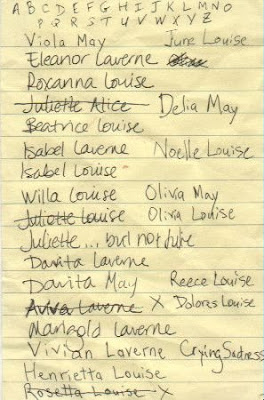 A B C D E F G H I J K L M N O
P Q R S T U V W X Y Z
Viola May June Louise
Eleanor Laverne
Roxanna Louise
Juliette Alice Delia May
Beatrice Louise
Isabel Laverne Noelle Louise
Isabel Louise
Willa Louise Olivia May
Juliette Louise Olivia Louise
Juliette... but not June
Davita Laverne
Davita May Reece Louise
Aviva Laverne X Dolores Louise
Marigold Laverne
Vivian Laverne Crying Sadness
Henrietta Louise
Rosetta Louise X